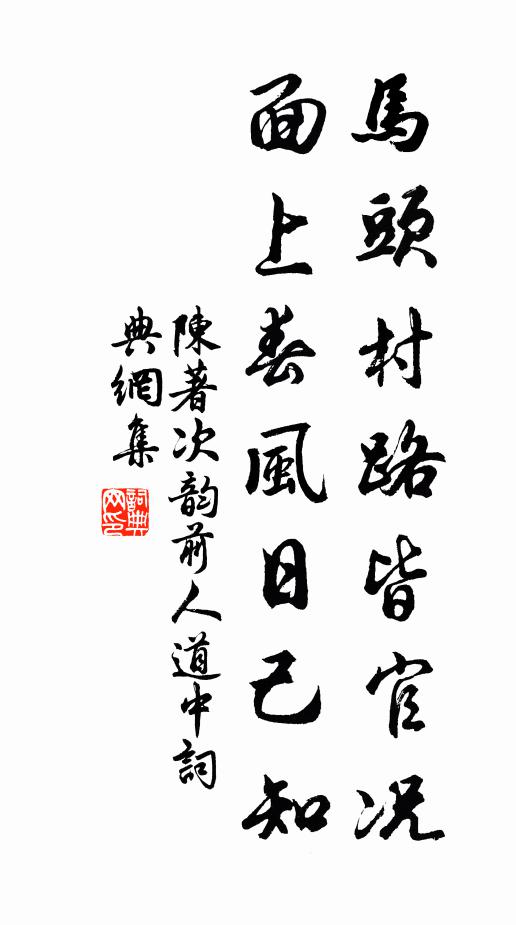 馬頭村路皆官况
面上春風日己知
陳著次韵前人道中詞
典網集
詞典網印